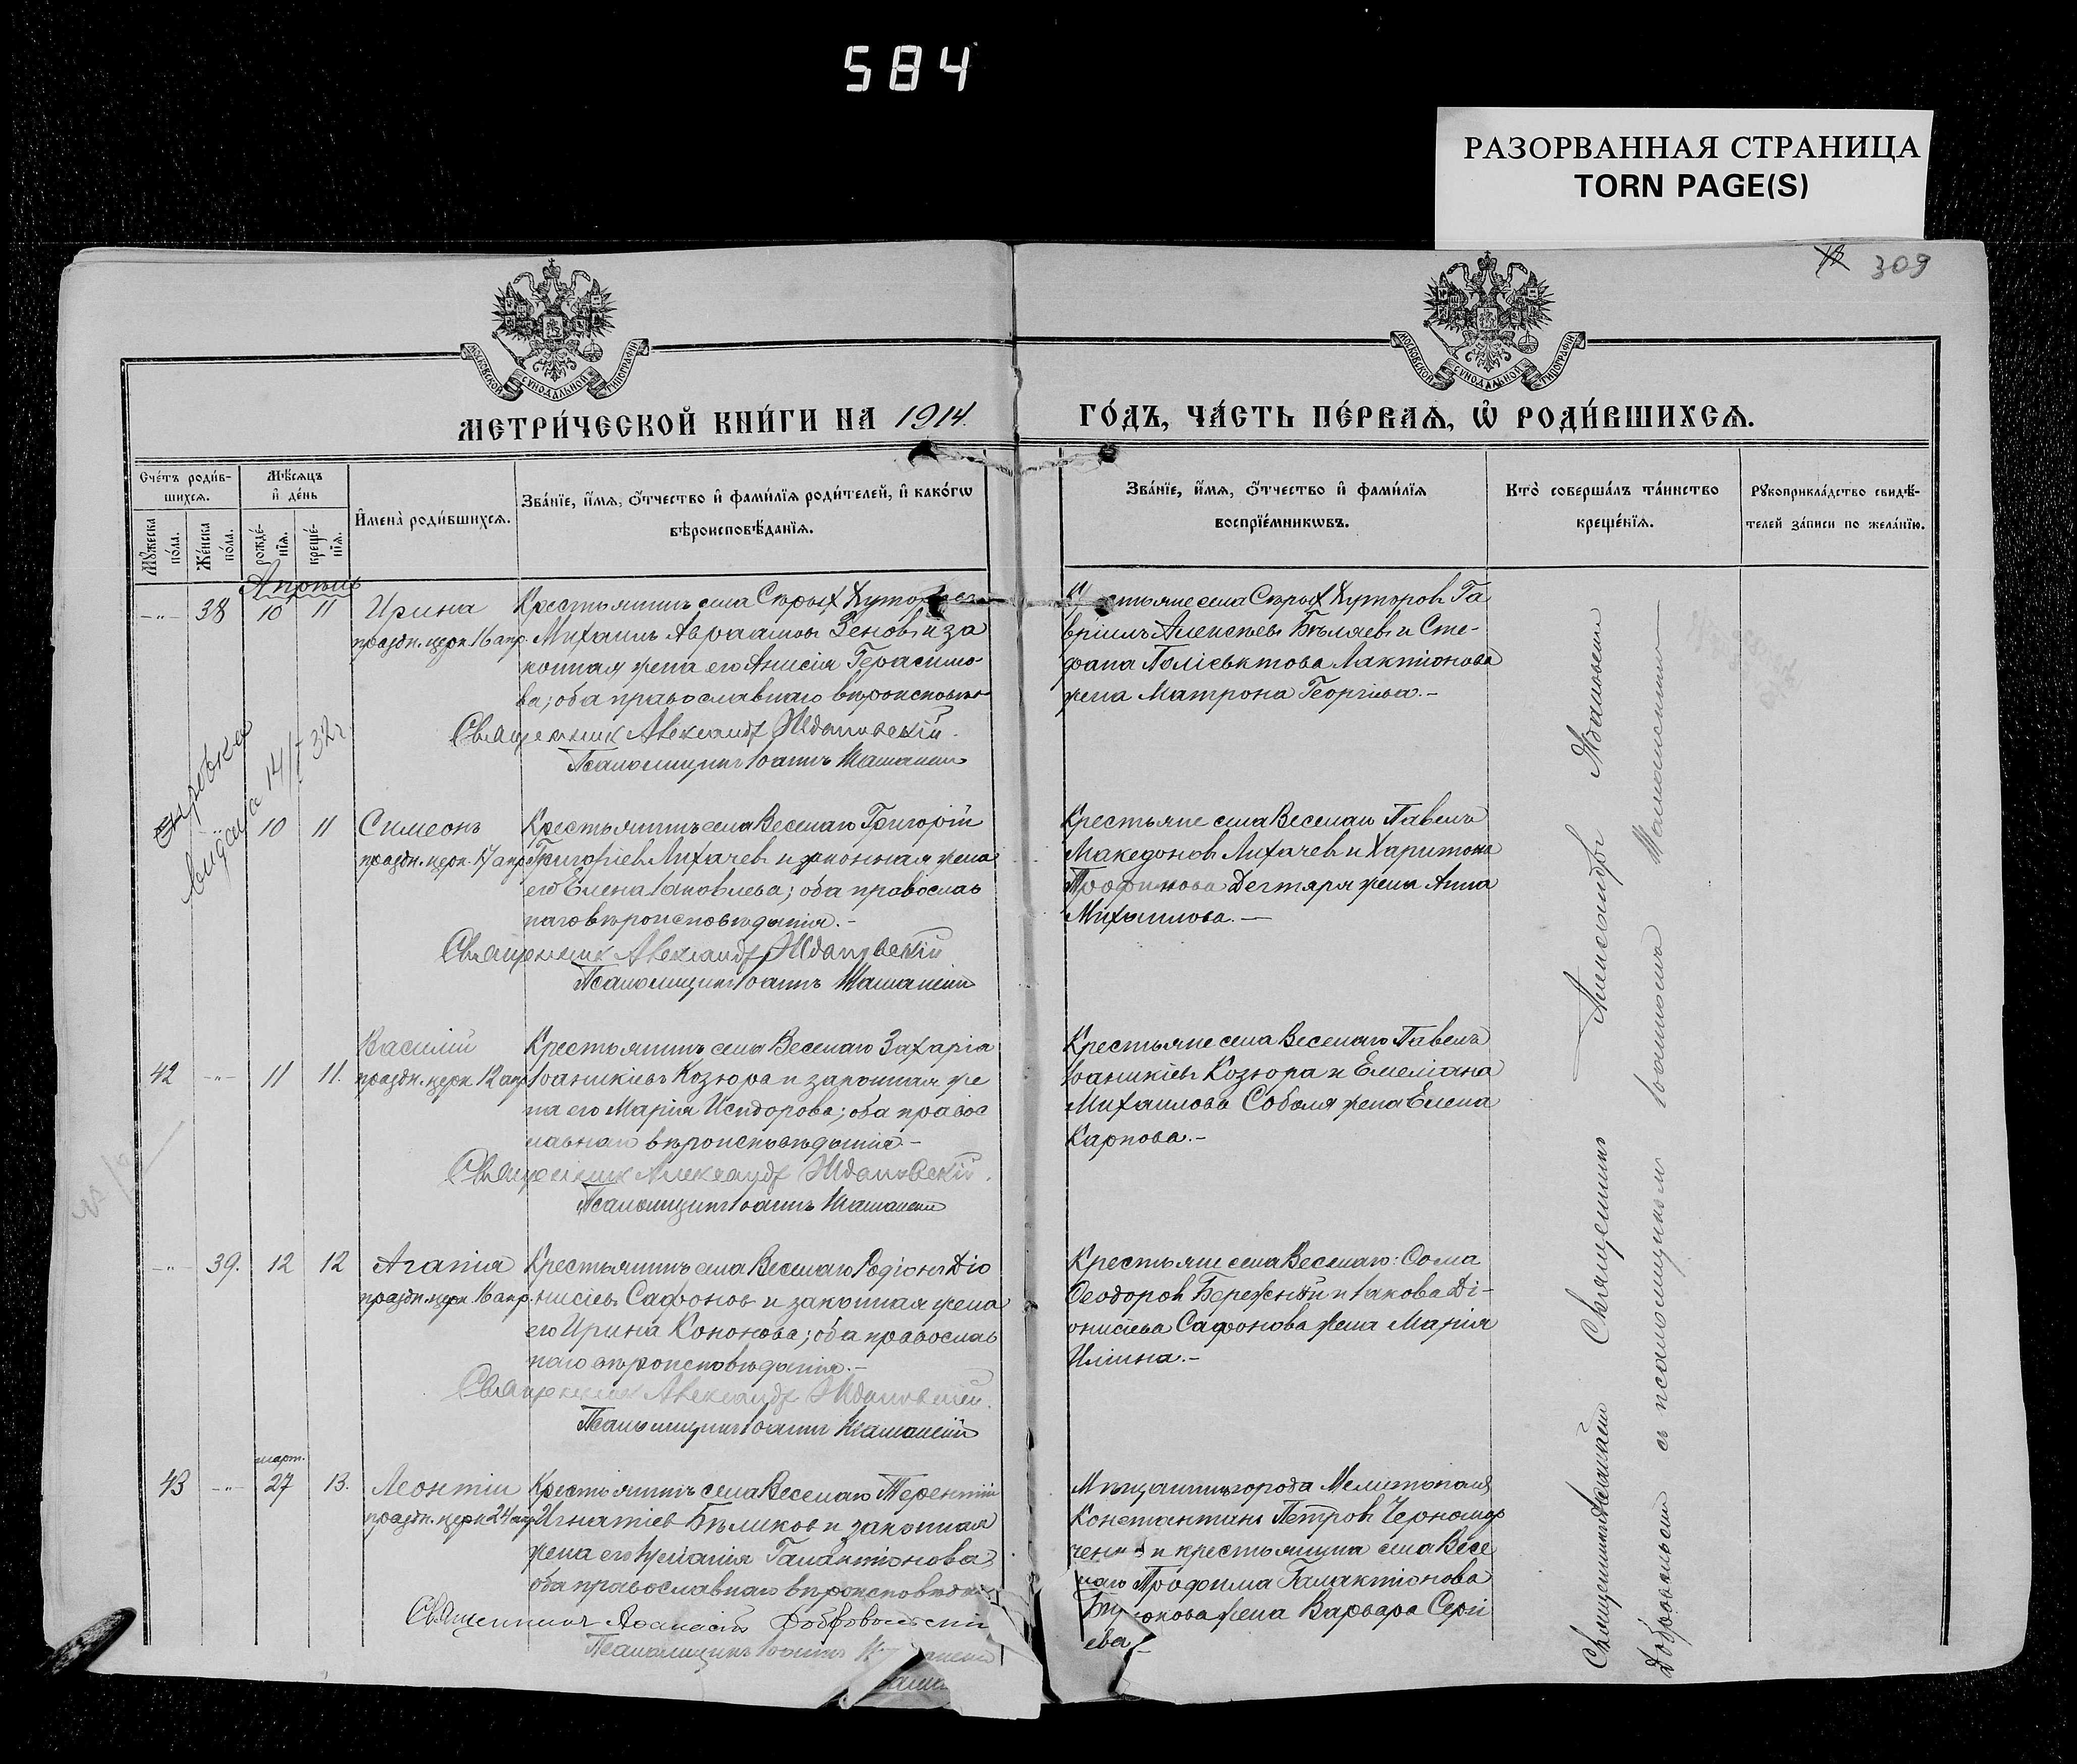 584
РАЗОРВАННАЯ СТРАНИЦА
TORN PAGE(S)
309
МОСКОВСКОЙ СѴНОДАЛЬНОЙ ТИПОГРАФІИ
МОСКОВСКОЙ СѴНОДАЛЬНОЙ ТИПОГРАФІИ
МЕТРИ́ЧЕСКОЙ КНИ́ГИ НА 1914.
ГО́ДЪ, ЧА́СТЬ ПЕ́РВАѦ, Ѡ҆ РОДИ́ВШИХСѦ.
Сче́тъ роди́в-
шихсѧ.
Мѣ́сѧцъ
и҆ де́нь
Мꙋ́жеска
по́ла.
Же́нска
по́ла.
рожде́-
нїѧ.
креще́-
нїѧ.
И҆мена̀ роди́вшихсѧ.
Зва́нїе, и҆́мѧ, ѻ҆́тчество и҆ фами́лїѧ роди́телей, и҆ како́гѡ
вѣроисповѣ́данїѧ.
Зва́нїе, и҆́мѧ, ѻ҆́тчество и҆ фами́лїѧ
воспрїе́мникѡвъ.
Кто̀ соверша́лъ та́инство
креще́нїѧ.
Рꙋкоприкла́дство свидѣ́-
телей за́писи по жела́нїю.
Апрѣль
-"- 38 10 11 Ирина
праздн. церк. 16 апр.
Крестьянинъ села Сѣрых Хуторов
Михаилъ Авраамовъ Зеновъ и за
конная жена его Анисія Герасимо-
ва; оба православнаго вѣроисповѣ
Священник Александр Ждановский.
Псаломщикъ Іоаннъ
Крестьяне села Сѣрых Хуторов Га
вріилъ Алексѣевъ Бѣляевъ и Сте-
фана Поліевктова Лактіонова
жена Матрона Георгіева.-
справка
выдана 14/I 32 г.
10 11 Симеонъ
праздн. церк. 17 апр.
Крестьянинъ села Веселаго Григорій
Григоріевъ Лихачевъ и законная жена
его Елена Іаковлева; оба православ
наго вѣроисповѣданія.-
Священник Александр Ждановский
Псаломщикъ Іоаннъ
Крестьяне села Веселаго Павелъ
Македоновъ Лихачевъ и Харитона
Дегтяря жена Анна
Михаилова.-
42 -"- 11 11. Василій
праздн. церк. 12 апр.
Крестьянинъ села Веселаго Захарія
Іоанникіевъ Козюра и законная же
на его Марія Исидорова; оба правос
лавнаго вѣроисповѣданія-
Священник Александр Ждановский.
Псаломщикъ Іоаннъ
Крестьяне села Веселаго Павелъ
Іоанникіевъ Козюра и Емеліана
Михаилова Соболя жена Елена
Карпова.-
-"- 39. 12 12 Агапія
праздн. церк. 16 апр.
Крестьянинъ села Веселаго Родіонъ Діо
нисіевъ Сафонов и законная жена
его Ирина Кононова; оба православ
наго вѣроисповѣданія.-
Священник Александр Ждановский.
Псаломщикъ Іоаннъ
Крестьяне села Веселаго: Ѳома
Ѳеодоровъ Бережный и Іакова Ді-
онисіева Сафонова жена Марія
Иліина.-
март.
43 -"- 27 13. Леонтій
праздн. церк. 24 апр.
Крестьянинъ села Веселаго Терентій
Игнатіев Бѣликов и законная
жена его Галактіонова
оба православнаго вѣроисповѣдан
Священникъ Аѳанасій Добровольскій
Псаломщикъ Іоаннъ
Мѣщанинъ города Мелитополя
Константинъ Петровъ
и крестьянина села Весе
лаго Трофима Галактіонова
жена Варвара Серги
ева.-
Священникъ Александръ
съ псаломщикомъ Іоанномъ
Добровольскій